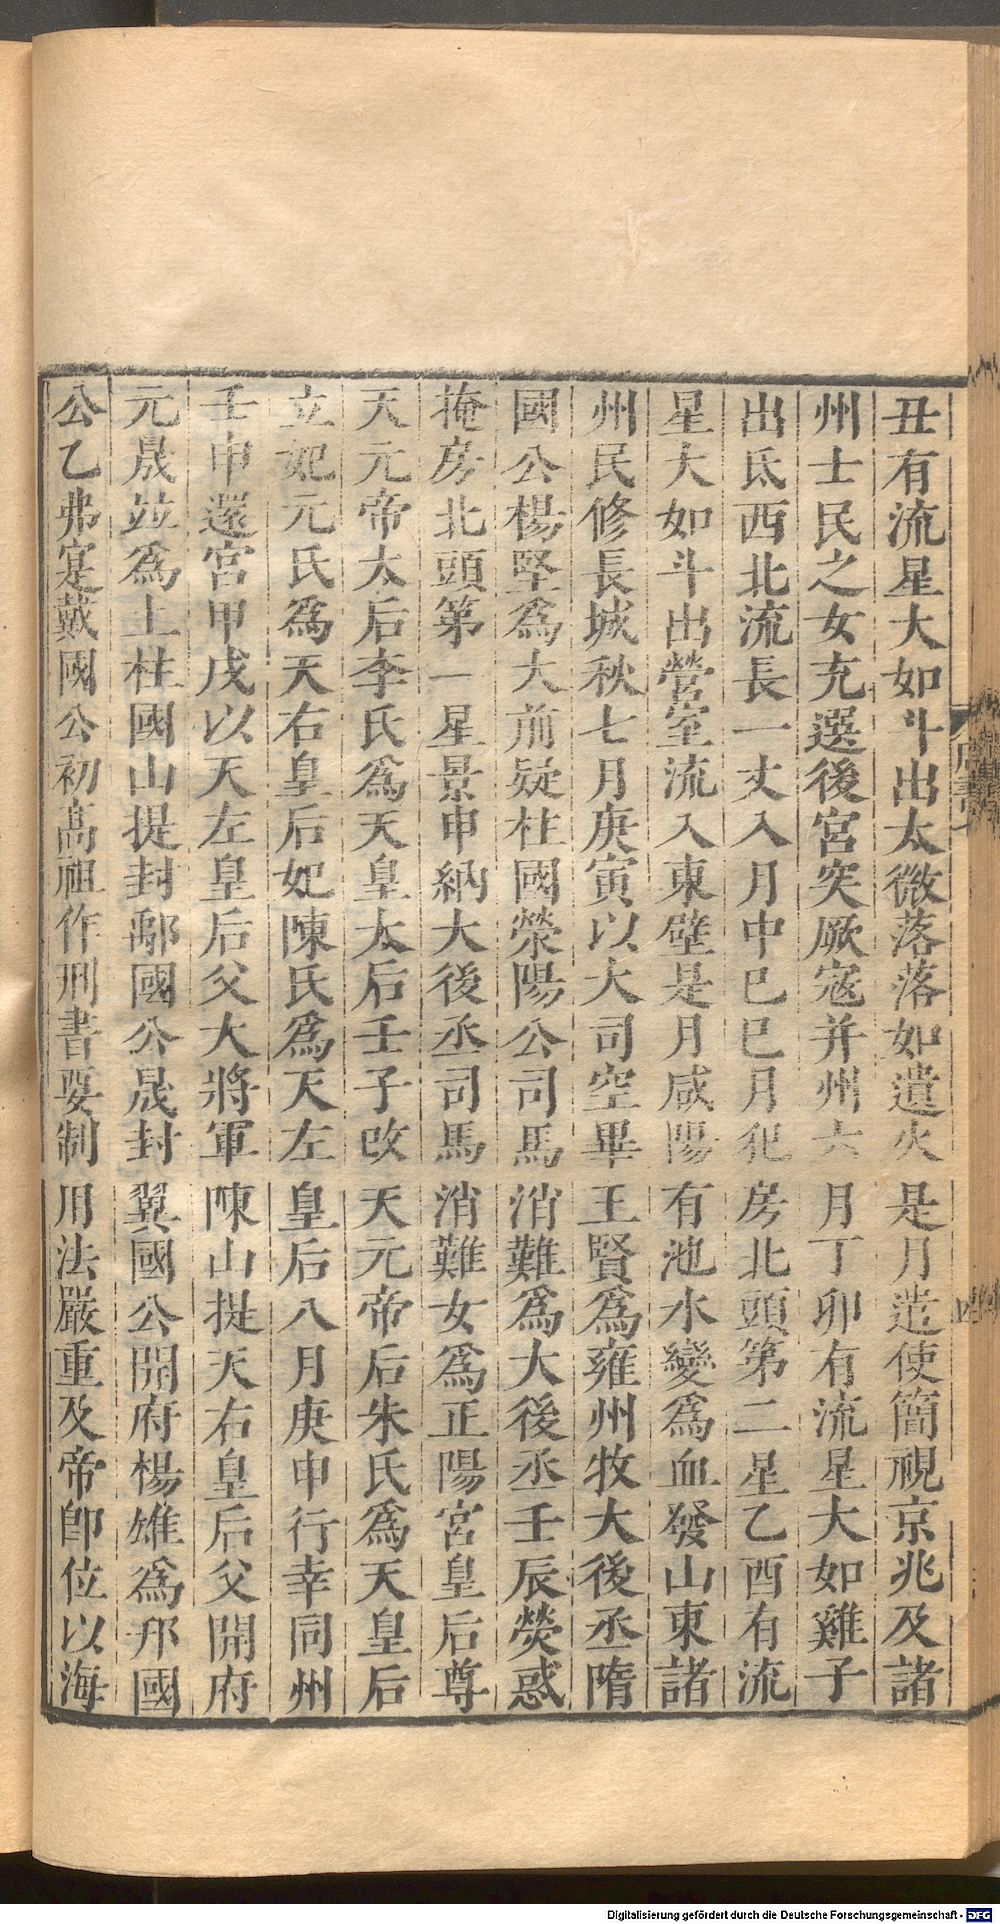 丑有流星大如斗出太微落落如遺火是月遣使簡視京兆及諸
州士民之女充選後宮突厥寇并州六月丁卯有流星大如雞子
出氐西北流長一丈入月中己巳月犯房北頭第二星乙酉有流
星大如斗出營室流入東壁是月咸陽有池水變爲血發山東諸
州民修長城秋七月庚寅以大司空畢王賢爲雍州牧大後丞隋
國公楊堅爲大前疑柱國滎陽公司馬消難爲大後丞壬辰熒惑
掩房北頭第一星景申納大後丞司馬消難女爲正陽宮皇后尊
天元帝太后李氏爲天皇太后壬子改天元帝后朱氏爲天皇后
立妃元氏爲天右皇后妃陳氏爲天左皇后八月庚申行幸同州
壬申還宮甲戌以天左皇后父大將軍陳山提天右皇后父開府
元晟並爲上柱國山提封鄅國公晟封翼國公開府楊雄爲邗國
公乙弗寔戴國公初高祖作刑書要制用法嚴重及帝即位以海
Digitalisierung gefördert durch die Deutsche Forschungsgemeinschaft - DFG